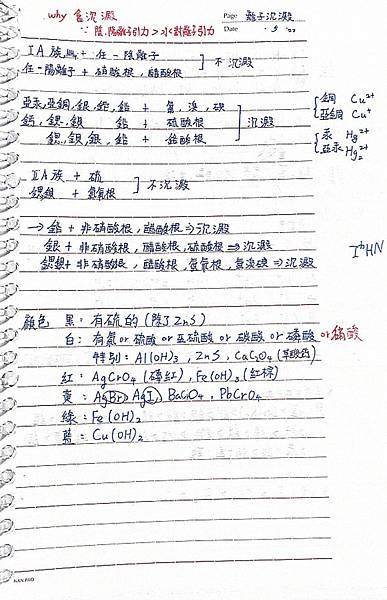 why 會沉澱
Page 離子沉澱
∵ 陰.陽離子引力 > 水對離子引力
Date
IA族, + 任一陰離子
任一陽離子 + 硝酸根, 醋酸根
不沉澱
亞汞,亞銅,銀,鉛,鉈 + 氯,溴,碘
鈣,鍶,鋇 鉛 + 硫酸根
鍶,鋇,銀,鉛 + 鉻酸根
沉澱
銅 Cu²⁺
亞銅 Cu⁺
汞 Hg²⁺
亞汞 Hg₂²⁺
IIA族 + 硫
鍶鋇 + 氫氧根
不沉澱
→ 鉛 + 非硝酸根,醋酸根 ⇒ 沉澱
銀 + 非硝酸根,醋酸根,硫酸根 ⇒ 沉澱
鍶鋇 + 非硝酸根,醋酸根,氫氧根,氯溴碘 ⇒ 沉澱
顏色 黑: 有硫的 (除了ZnS)
白: 有氯 or 硫酸 or 亞硫酸 or 碳酸 or 磷酸 or 硝酸
特別: Al(OH)₃, ZnS, CaC₂O₄ (草酸鈣)
紅: AgCrO₄ (磚紅), Fe(OH)₃ (紅棕)
黃: AgBr, AgI, BaCrO₄, PbCrO₄
綠: Fe(OH)₂
藍: Cu(OH)₂
NAN BAO